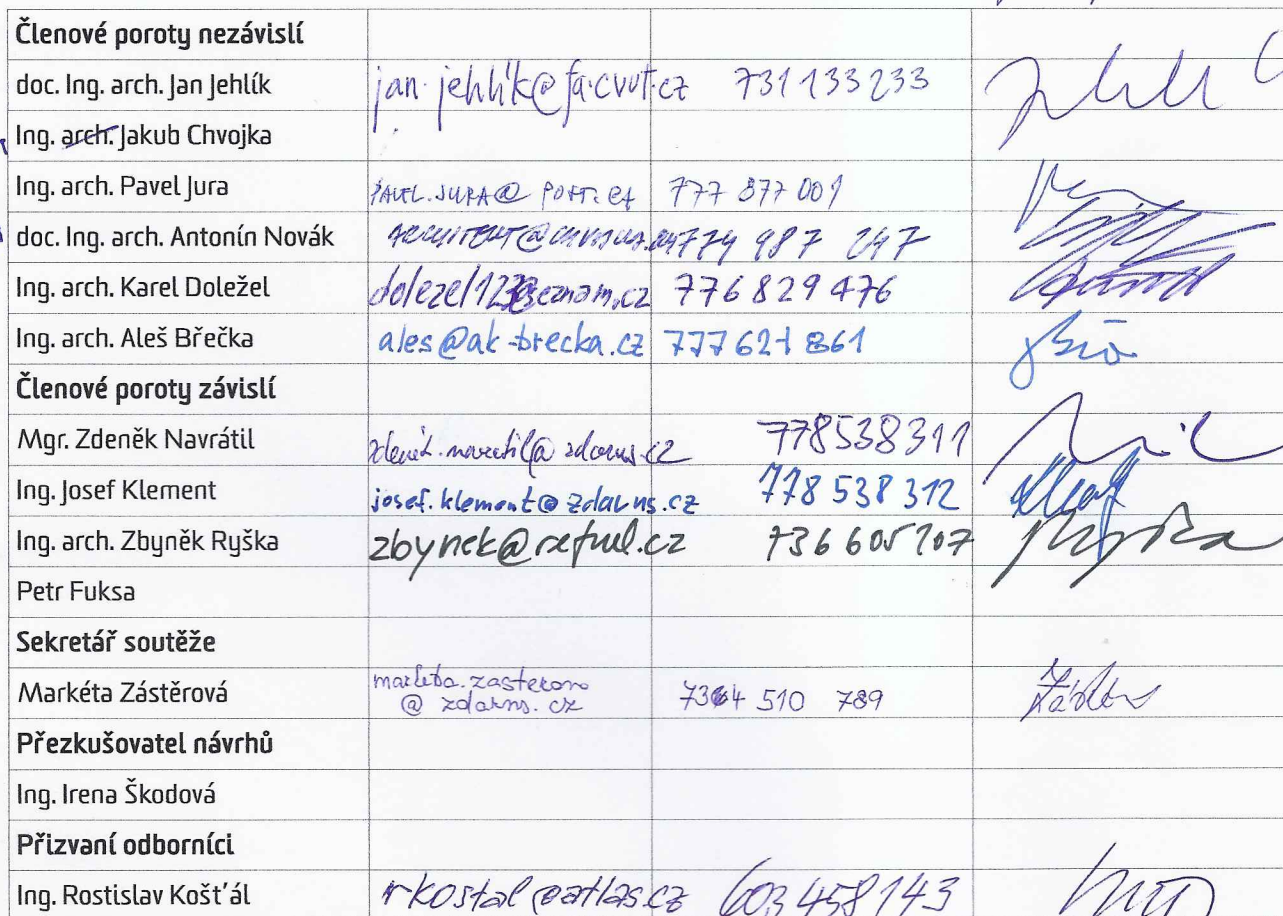 Členové poroty nezávislí
doc. Ing. arch. Jan Jehlík jan.jehlik@fa.cvut.cz 731 133 233
Ing. arch. Jakub Chvojka
Ing. arch. Pavel Jura PAVEL.JURA@POST.CZ 777 877 001
doc. Ing. arch. Antonín Novák 774 987 247
Ing. arch. Karel Doležel 776 829 476
Ing. arch. Aleš Břečka ales@ak-brecka.cz 777 621 861
Členové poroty závislí
Mgr. Zdeněk Navrátil zdenek.navratil@zdarns.cz 778538311
Ing. Josef Klement josef.klement@zdarns.cz 778 538 312
Ing. arch. Zbyněk Ryška zbynek@refuel.cz 736 605 707
Petr Fuksa
Sekretář soutěže
Markéta Zástěrová marketa.zasterova
@zdarns.cz 734 510 789
Přezkušovatel návrhů
Ing. Irena Škodová
Přizvaní odborníci
Ing. Rostislav Košťál rkostal@atlas.cz 603 458 143